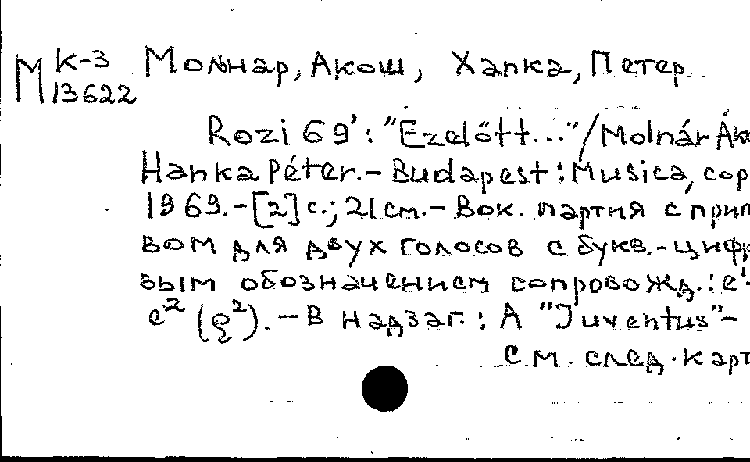 М К-3 13622 Молнар, Акош, Ханка, Петер
Rozi 69': "Ezelőtt..." / Molnár Ák
Hanka Péter. - Budapest : Musica, cop
1969. - [2] с.; 21 см. - Вок. партия с прип
вом для двух голосов с букв.-цифр
вым обозначением сопровожд.: e¹-
e² (g²). - В надзаг.: A "Juventus" -
См. след. карт